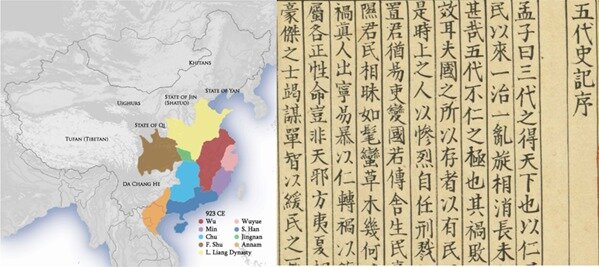 KHITANS
STATE OF YAN
STATE OF JIN
(SHATUO)
UIGHURS
STATE OF QI
TUFAN (TIBETAN)
DA CHANG HE
923 CE
Wu
Min
Chu
F. Shu
L. Liang Dynasty
Wuyue
S. Han
Jingnan
Annam
五代史記序
孟子曰三代之得天下也以仁
民以來一治一亂旋相消長未
甚哉五代不仁之極也其禍敗
效耳夫國之所以存者以有民
是時上之人以慘烈自任刑戮
置君猶易吏變國若傳舍生民
隰君民相眎如髦蠻草木幾何
禍眞人出寧易暴以仁轉禍以
屬各正性命豈非天邪方夷夏
豪傑之士竭謀單智以緩民之